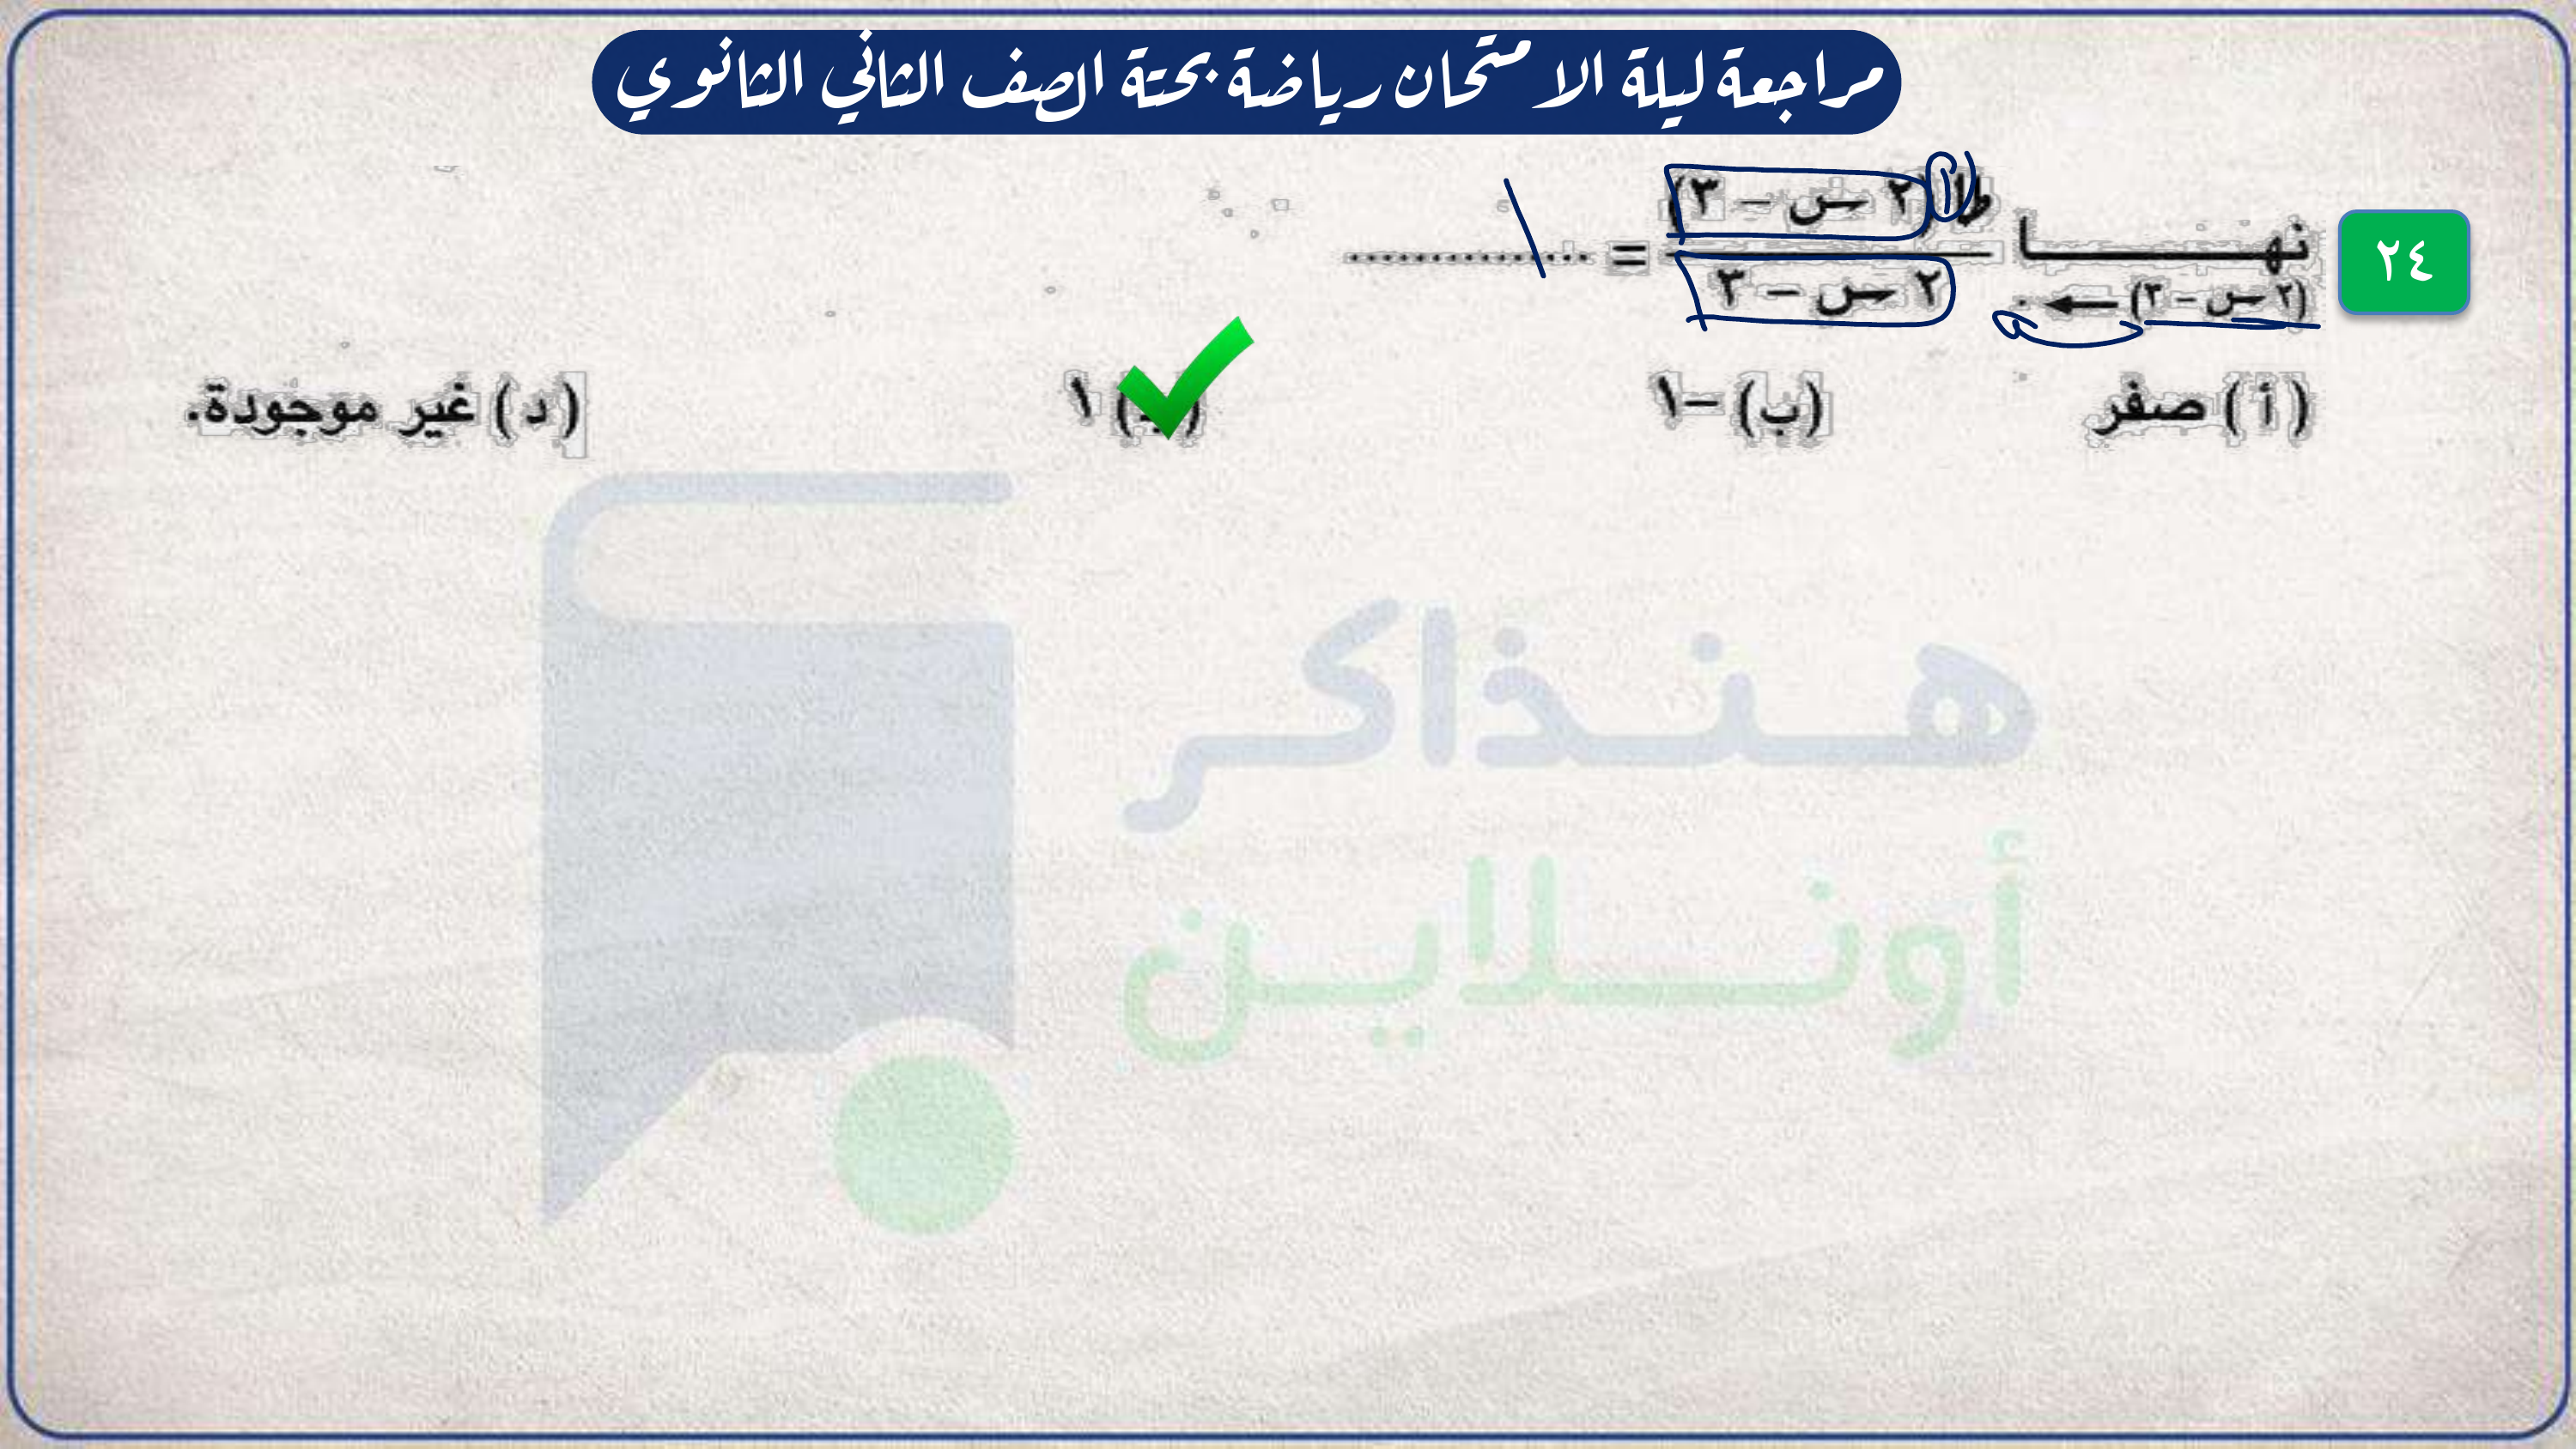 مراجعة ليلة الامتحان رياضة بحتة الصف الثاني الثانوي
٢٤
نهــــــا (٢ س – ٣) ← ٠ طا (٢ س – ٣) / ٢ س – ٣ = ............... ١
(أ) صفر (ب) –١ (جـ) ١ (د) غير موجودة.
هنذاكر
أونلاين